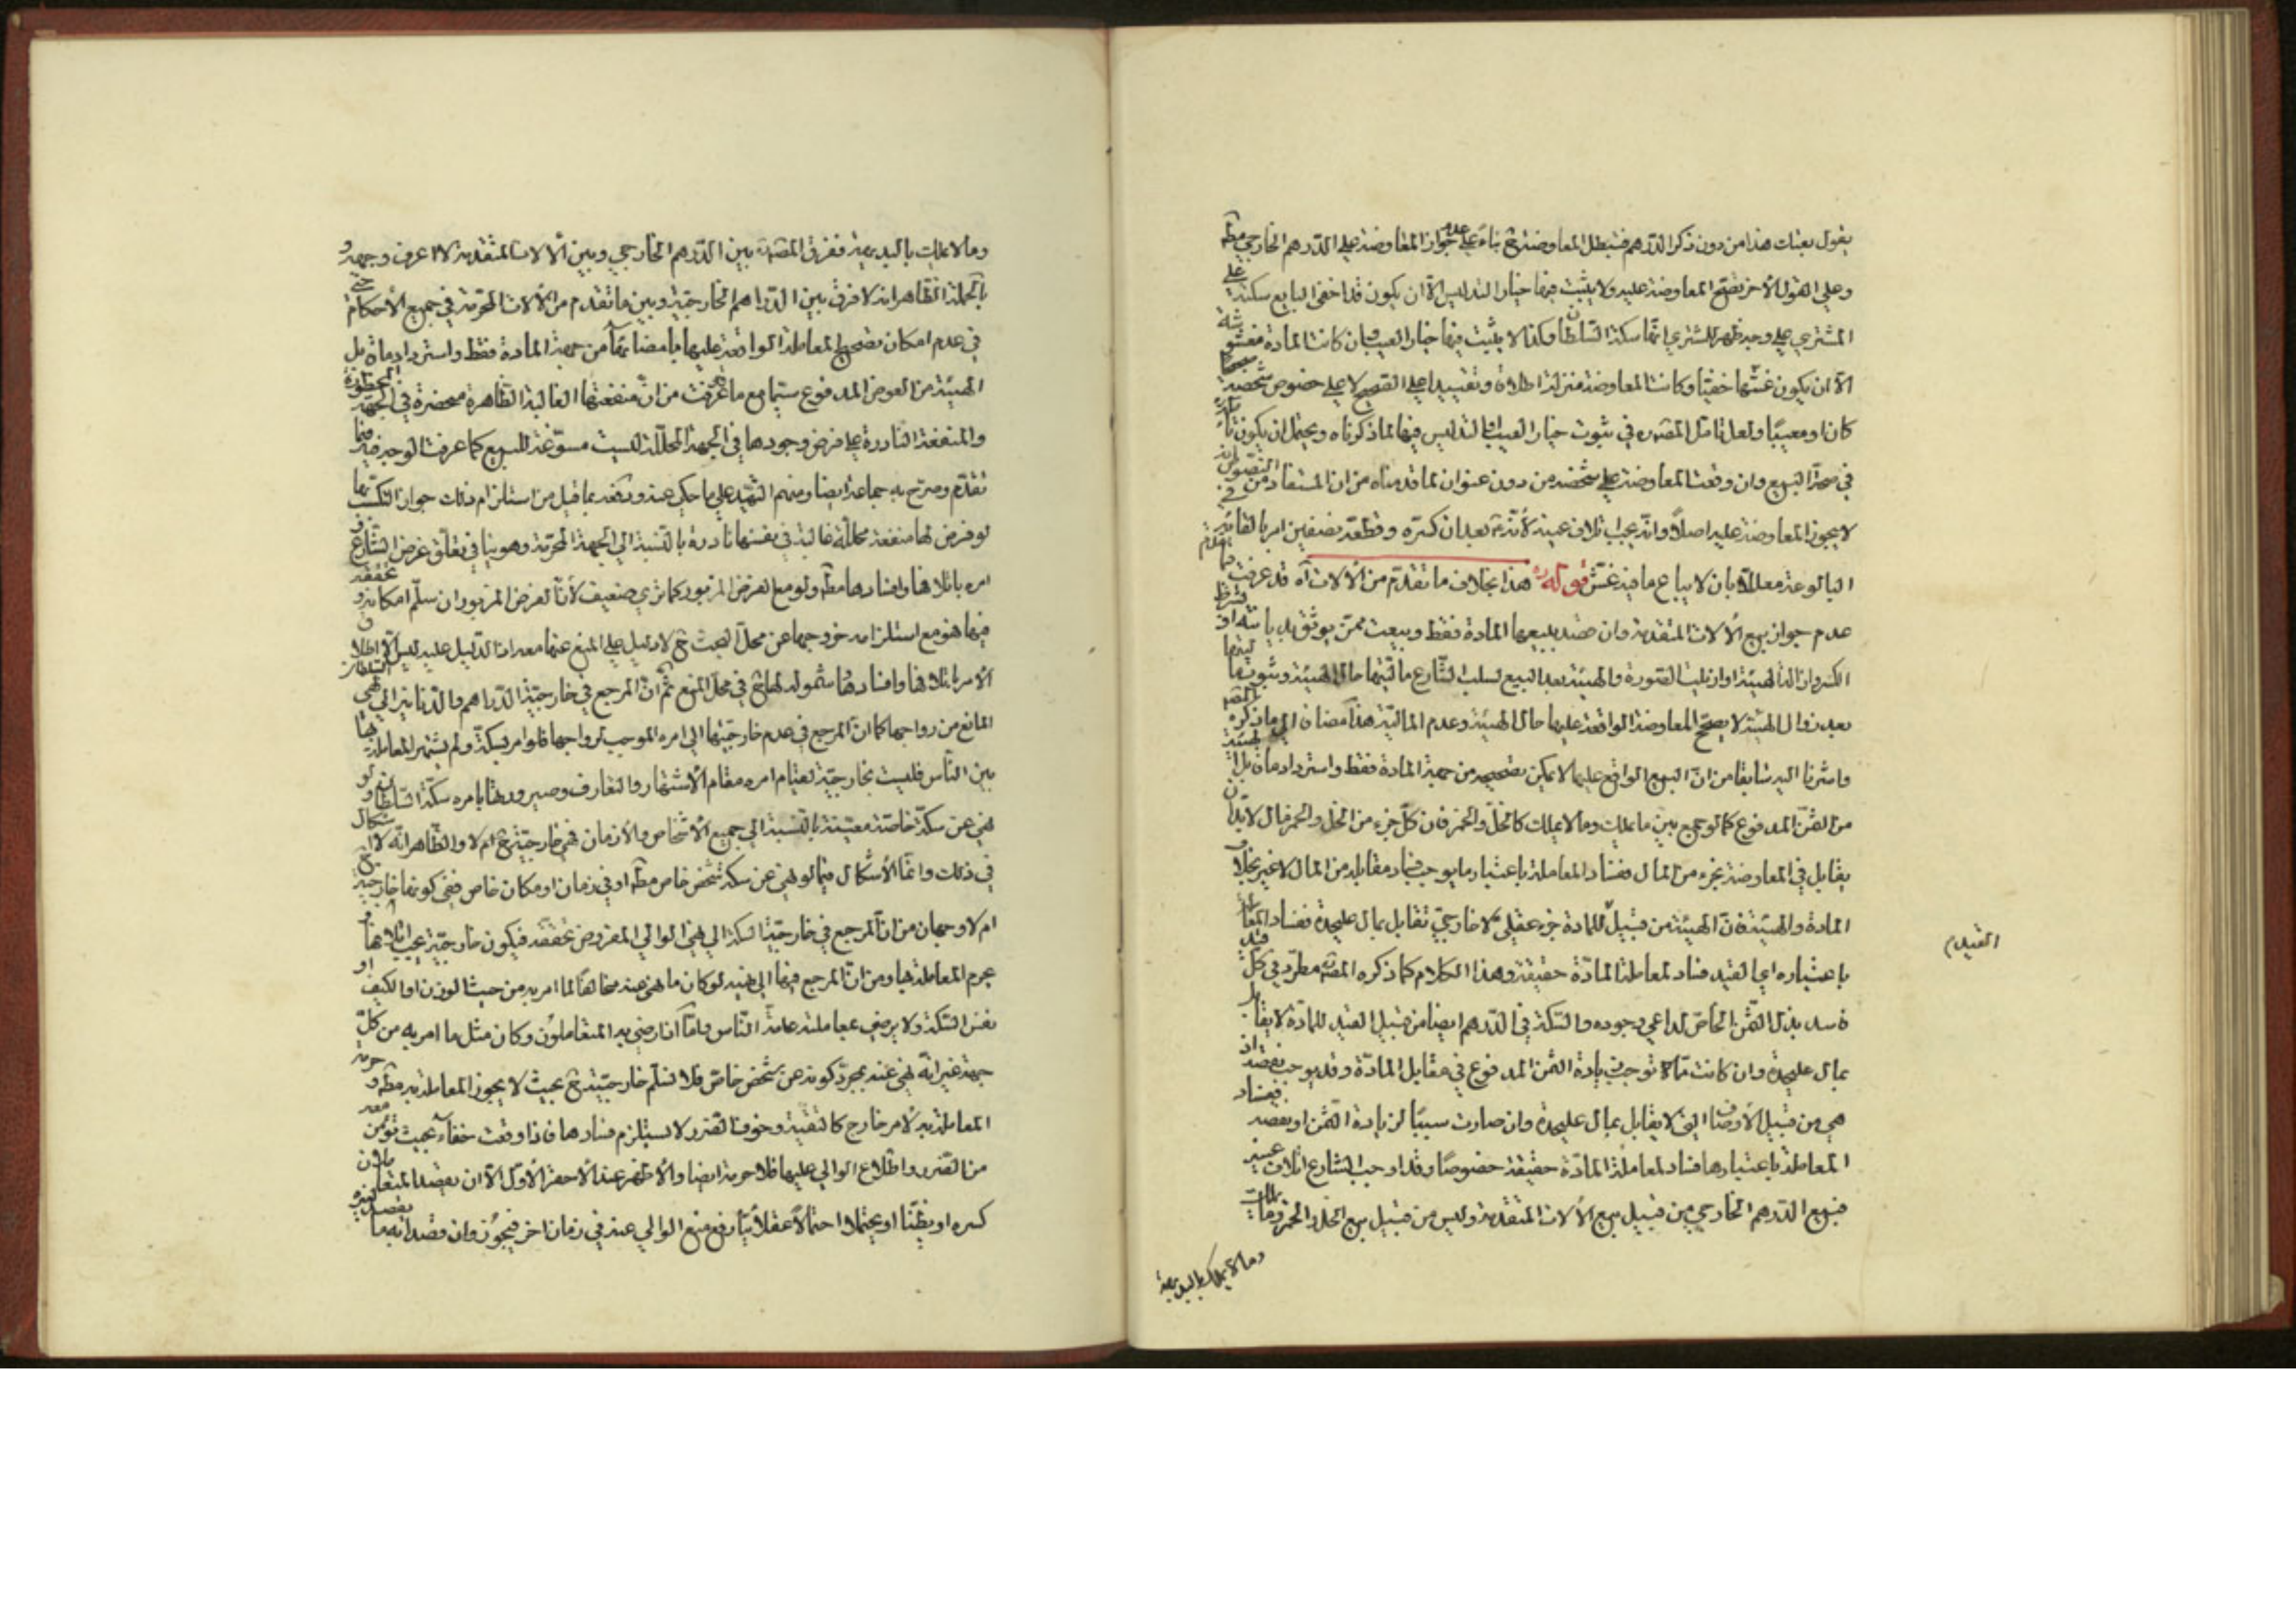 يقول بعتك هذا من دون ذكر الدرهم فتبطل المعاوضة ح بناءً على عدم جواز المعاوضة على الدرهم الخارجي مطلقا
وعلى القول الأخر تصح المعاوضة عليه ولا يثبت فيها خيار التدليس الا ان يكون قد اخفى البايع سكته على
المشتري على وجه ظهر للمشتري انها سكة السلطان وكذا لا يثبت فيها خيار العيب وان كانت المادة مغشوشة
الا ان يكون غشها خفيا وكانت المعاوضة منزلة اطلاقا وتقييدا على الصحيح لا على خصوص شخصه صحيحا
كان او معيبا ولعل تامل المصره في ثبوت خيار العيب والتدليس فيها لما ذكرناه ويحتمل ان يكون تامله
في صحة البيع وان وقعت المعاوضة على شخصه من دون عنوان لما قدمناه من ان المستفاد من النصوص انه
لا يجوز المعاوضة عليه اصلاً وانه يجب اتلاف عينه لأنه ع بعد ان كسره وقطعه بنصفين امر بالقائه في
البالوعة معللاً بان لا يباع ما فيه غش قوله ره هذا بخلاف ما تقدم من الألات اه قد عرفت
عدم جواز بيع الألات المتقدمة وان قصد ببيعها المادة فقط وبيعت ممن يوثق به
الكسر وازالة الهيئة او ازيلت الصورة والهيئة بعد البيع لسلب الشارع ماليتها حال الهيئة وثبوتها
بعد زوال الهيئة لا يصحح المعاوضة الواقعة عليها حال الهيئة وعدم المالية هذا مضافا الى ما ذكره المصره
واشرنا اليه سابقا من ان البيع الواقع عليها لا يمكن تصحيحه من جهة المادة فقط واسترداد ما قابل الهيئة
من الثمن المدفوع كما لو جمع بين ما يملك وما لا يملك كالخل والخمر فان كل جزء من الخل والخمر مال لا بد ان
يقابل في المعاوضة بجزء من المال ففساد المعاملة باعتباره يوجب فساد مقابله من المال لا غير بخلاف
المادة والهيئة فان الهيئة من قبيل للمادة جزء عقلي لا خارجي تقابل بمال عليحدة ففساد المعاملة
القيد م
باعتباره اي القيد فساد لمعاملة المادة حقيقة وهذا الكلام كما ذكره المصره مطرد في كل قيد
فاسد بذل الثمن الخاص لداعي وجوده والسكة في الدرهم ايضا من قبيل القيد للمادة لا يقابل
بمال عليحدة وان كانت مما توجب زيادة الثمن المدفوع في مقابل المادة وقد يوجب نقصه اذ
هي من قبيل الأوصاف التي لا يقابل بمال عليحدة وان صارت سببا لزيادة الثمن او نقصه ففساد
المعاملة باعتبارها فساد لمعاملة المادة حقيقة خصوصا وقد اوجب الشارع اتلاف عينه
فبيع الدرهم الخارجي من قبيل بيع الألات المتقدمة وليس من قبيل بيع الخل والخمر وما يملك
وما لا يملك بالبديهة
وما لا يملك بالبديهة ففرق المصره بين الدرهم الخارجي وبين الألات المتقدمة لا اعرف وجهه و
بالجملة الظاهر انه لا فرق بين الدراهم الخارجية وبين ما تقدم من الألات المحرمة في جميع الأحكام حتى
في عدم امكان تصحيح المعاملة الواقعة عليها بامضائها من جهة المادة فقط واسترداد ما قابل
الهيئة من العوض المدفوع سيما مع ما عرفت من ان منفعتها الغالبة الظاهرة منحصرة في الجهة المحظورة
والمنفعة النادرة على فرض وجودها في الجهة المحللة ليست مسوغة للبيع كما عرفت الوجه فيه فيما
تقدم وصرح به جماعة ايضا ومنهم الشهيد على ما حكي عنه وبعد ما قيل من استلزام ذلك جواز التكسب بها
لو فرض لها منفعة محللة غالبة في نفسها نادرة بالنسبة الى الجهة المحرمة وهو ينافي تعلق غرض الشارع و
امره باتلافها وافسادها مطلقا ولو مع الفرض المزبور كما ترى ضعيف لأن الفرض المزبور ان سلم امكانه و تحققه
فيها فهو مع استلزامه خروجها عن محل البحث ح لا دليل على المنع عنها معه اذ الدليل عليه ليس الا اطلاق
الأمر باتلافها وافسادها وشموله لها ح في محل المنع ثم ان المرجع في خارجية الدراهم والدنانير الى نهي السلطان
المانع من رواجها كما ان المرجع في عدم خارجيتها الى امره الموجب لرواجها فلو امر بسكة ولم يشتهر المعاملة بها
بين الناس فليست بخارجية لقيام امره مقام الأشتهار والتعارف وصيرورتها بامره سكة السلطان و لو
نهى عن سكة خاصة معينة بالنسبة الى جميع الأشخاص والأزمان فهي خارجية ح ام لا والظاهر انه لا اشكال
في ذلك وانما الأشكال فيما لو نهى عن سكة شخص خاص مطلقا او في زمان او مكان خاص ففي كونها خارجية ح
ام لا وجهان من ان المرجع في خارجية السكة الى نهي الوالي المفروض تحققه فيكون خارجية يجب اتلافها و
يحرم المعاملة بها ومن ان المرجع فيها الى نهيه لو كان ما نهى عنه مخالفا لما امر به من حيث الوزن او الكيف او
نفس السكة ولا يرضى بمعاملته عامة الناس واما اذا رضي به المتعاملون وكان مثل ما امر به من كل
جهة غير انه نهى عنه بمجرد كونه عن شخص خاص فلا نسلم خارجيته ح بحيث لا يجوز المعاملة به مطلقا و حرمة
المعاملة به لأمر خارج كالتقية وخوف الضرر لا يستلزم فسادها فاذا وقعت خفاء بحيث تؤمن معه
من الضرر واطلاع الوالي عليها فلا حرمة ايضا والأظهر عند الأحقر الأول الا ان يقصد المتعاملان
كسره او يظنا او يحتملا احتمالا عقلائيا رفع منع الوالي عنه في زمان اخر فيجوز وان قصد